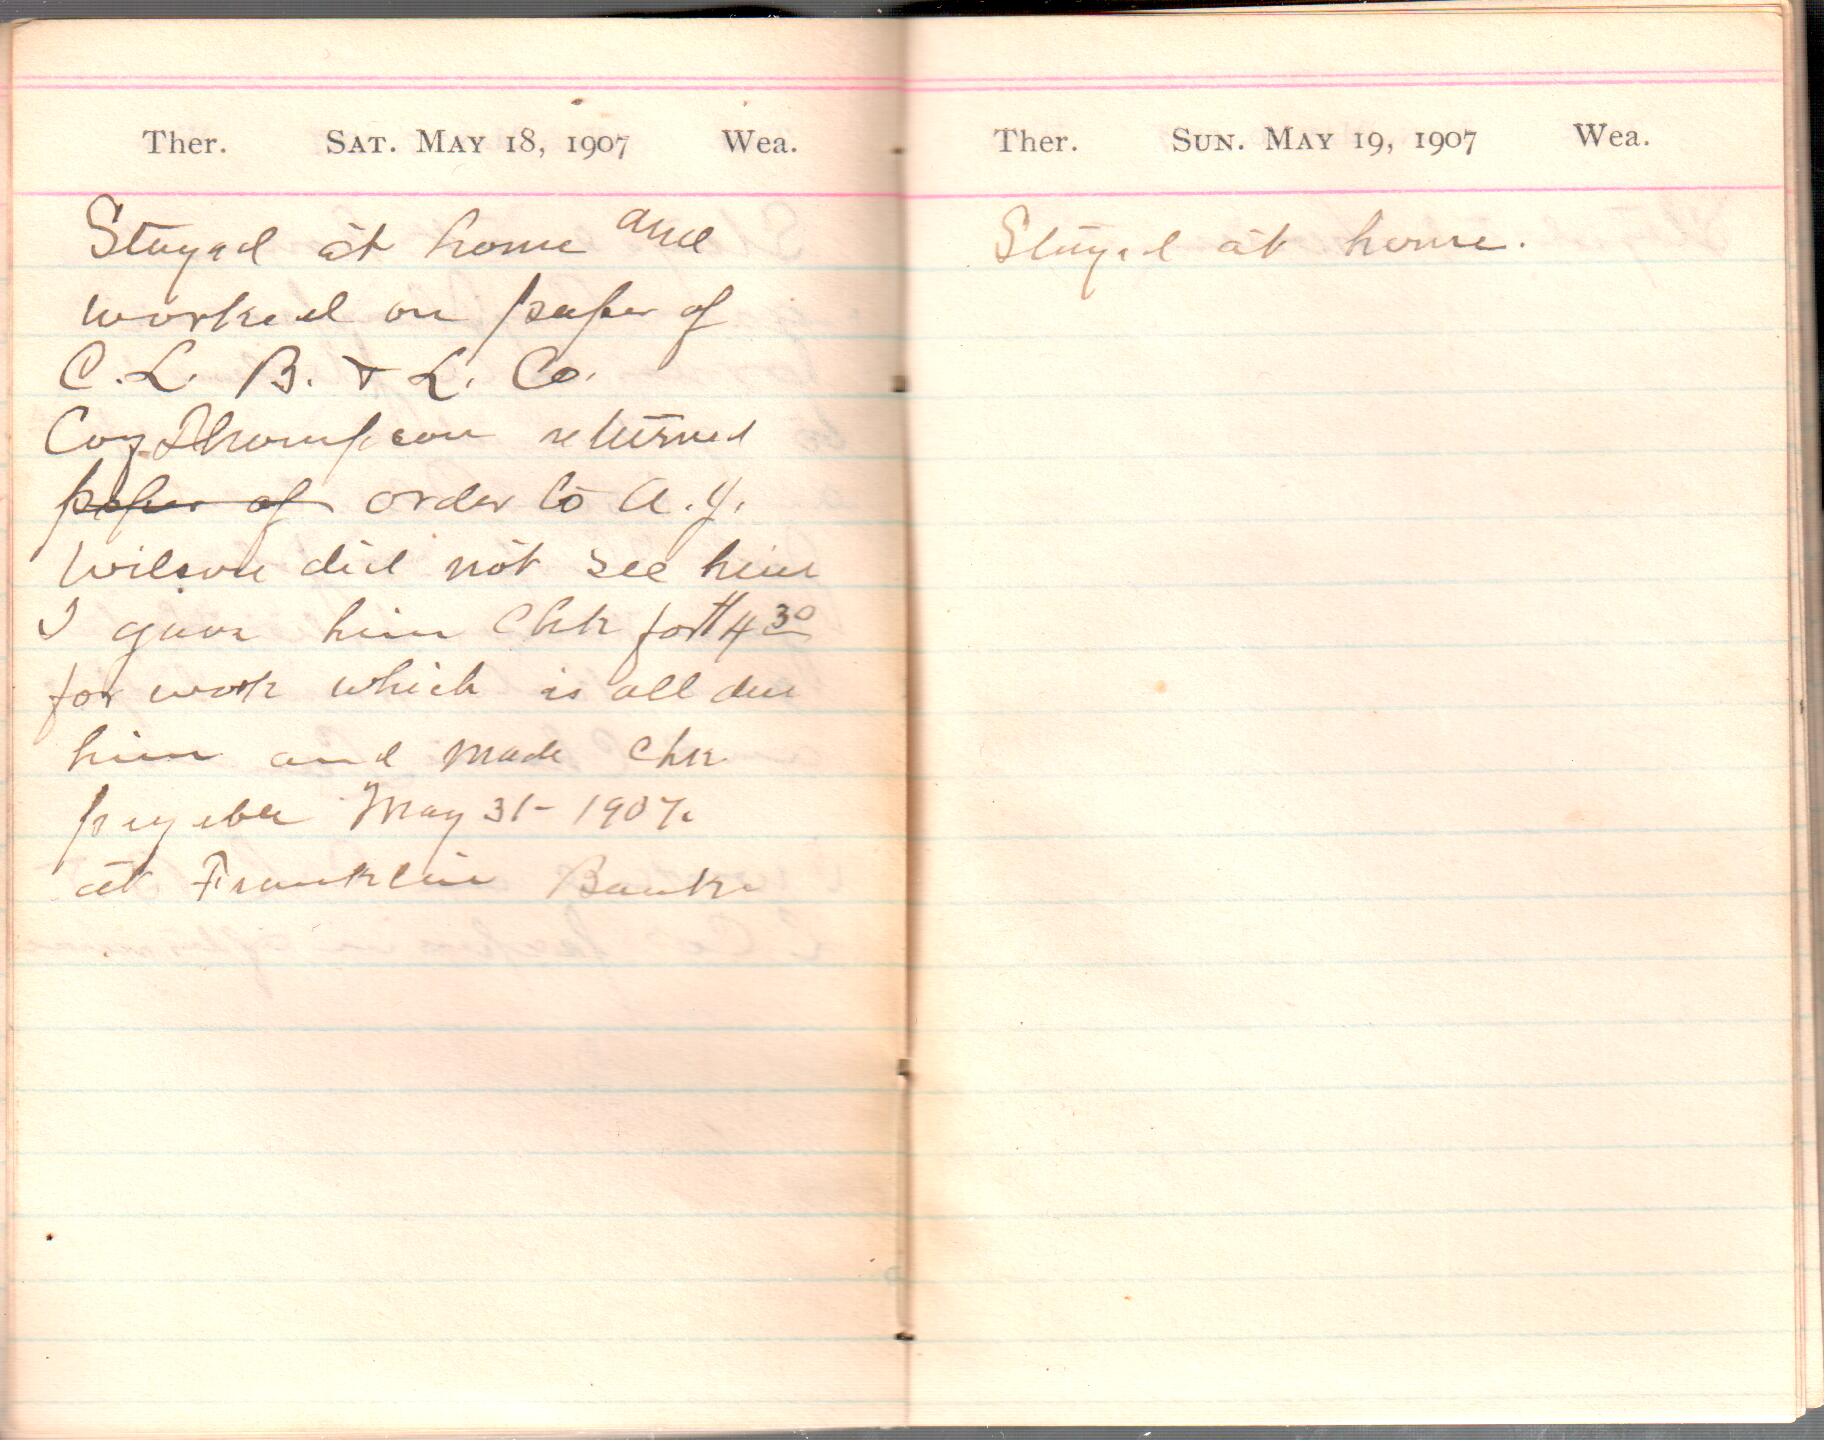 Ther. Sat. May 18, 1907 Wea.
Stayed at home and
worked on paper of
C. L. B. & L. Co.
Coy Thompson returned
paper of order to A. Y.
Wilson did not see him
I gave him Chk for $4 30
for work which is all due
him and made Chk
payable May 31 - 1907.
at Franklin Bank
Ther. Sun. May 19, 1907 Wea.
Stayed at home.